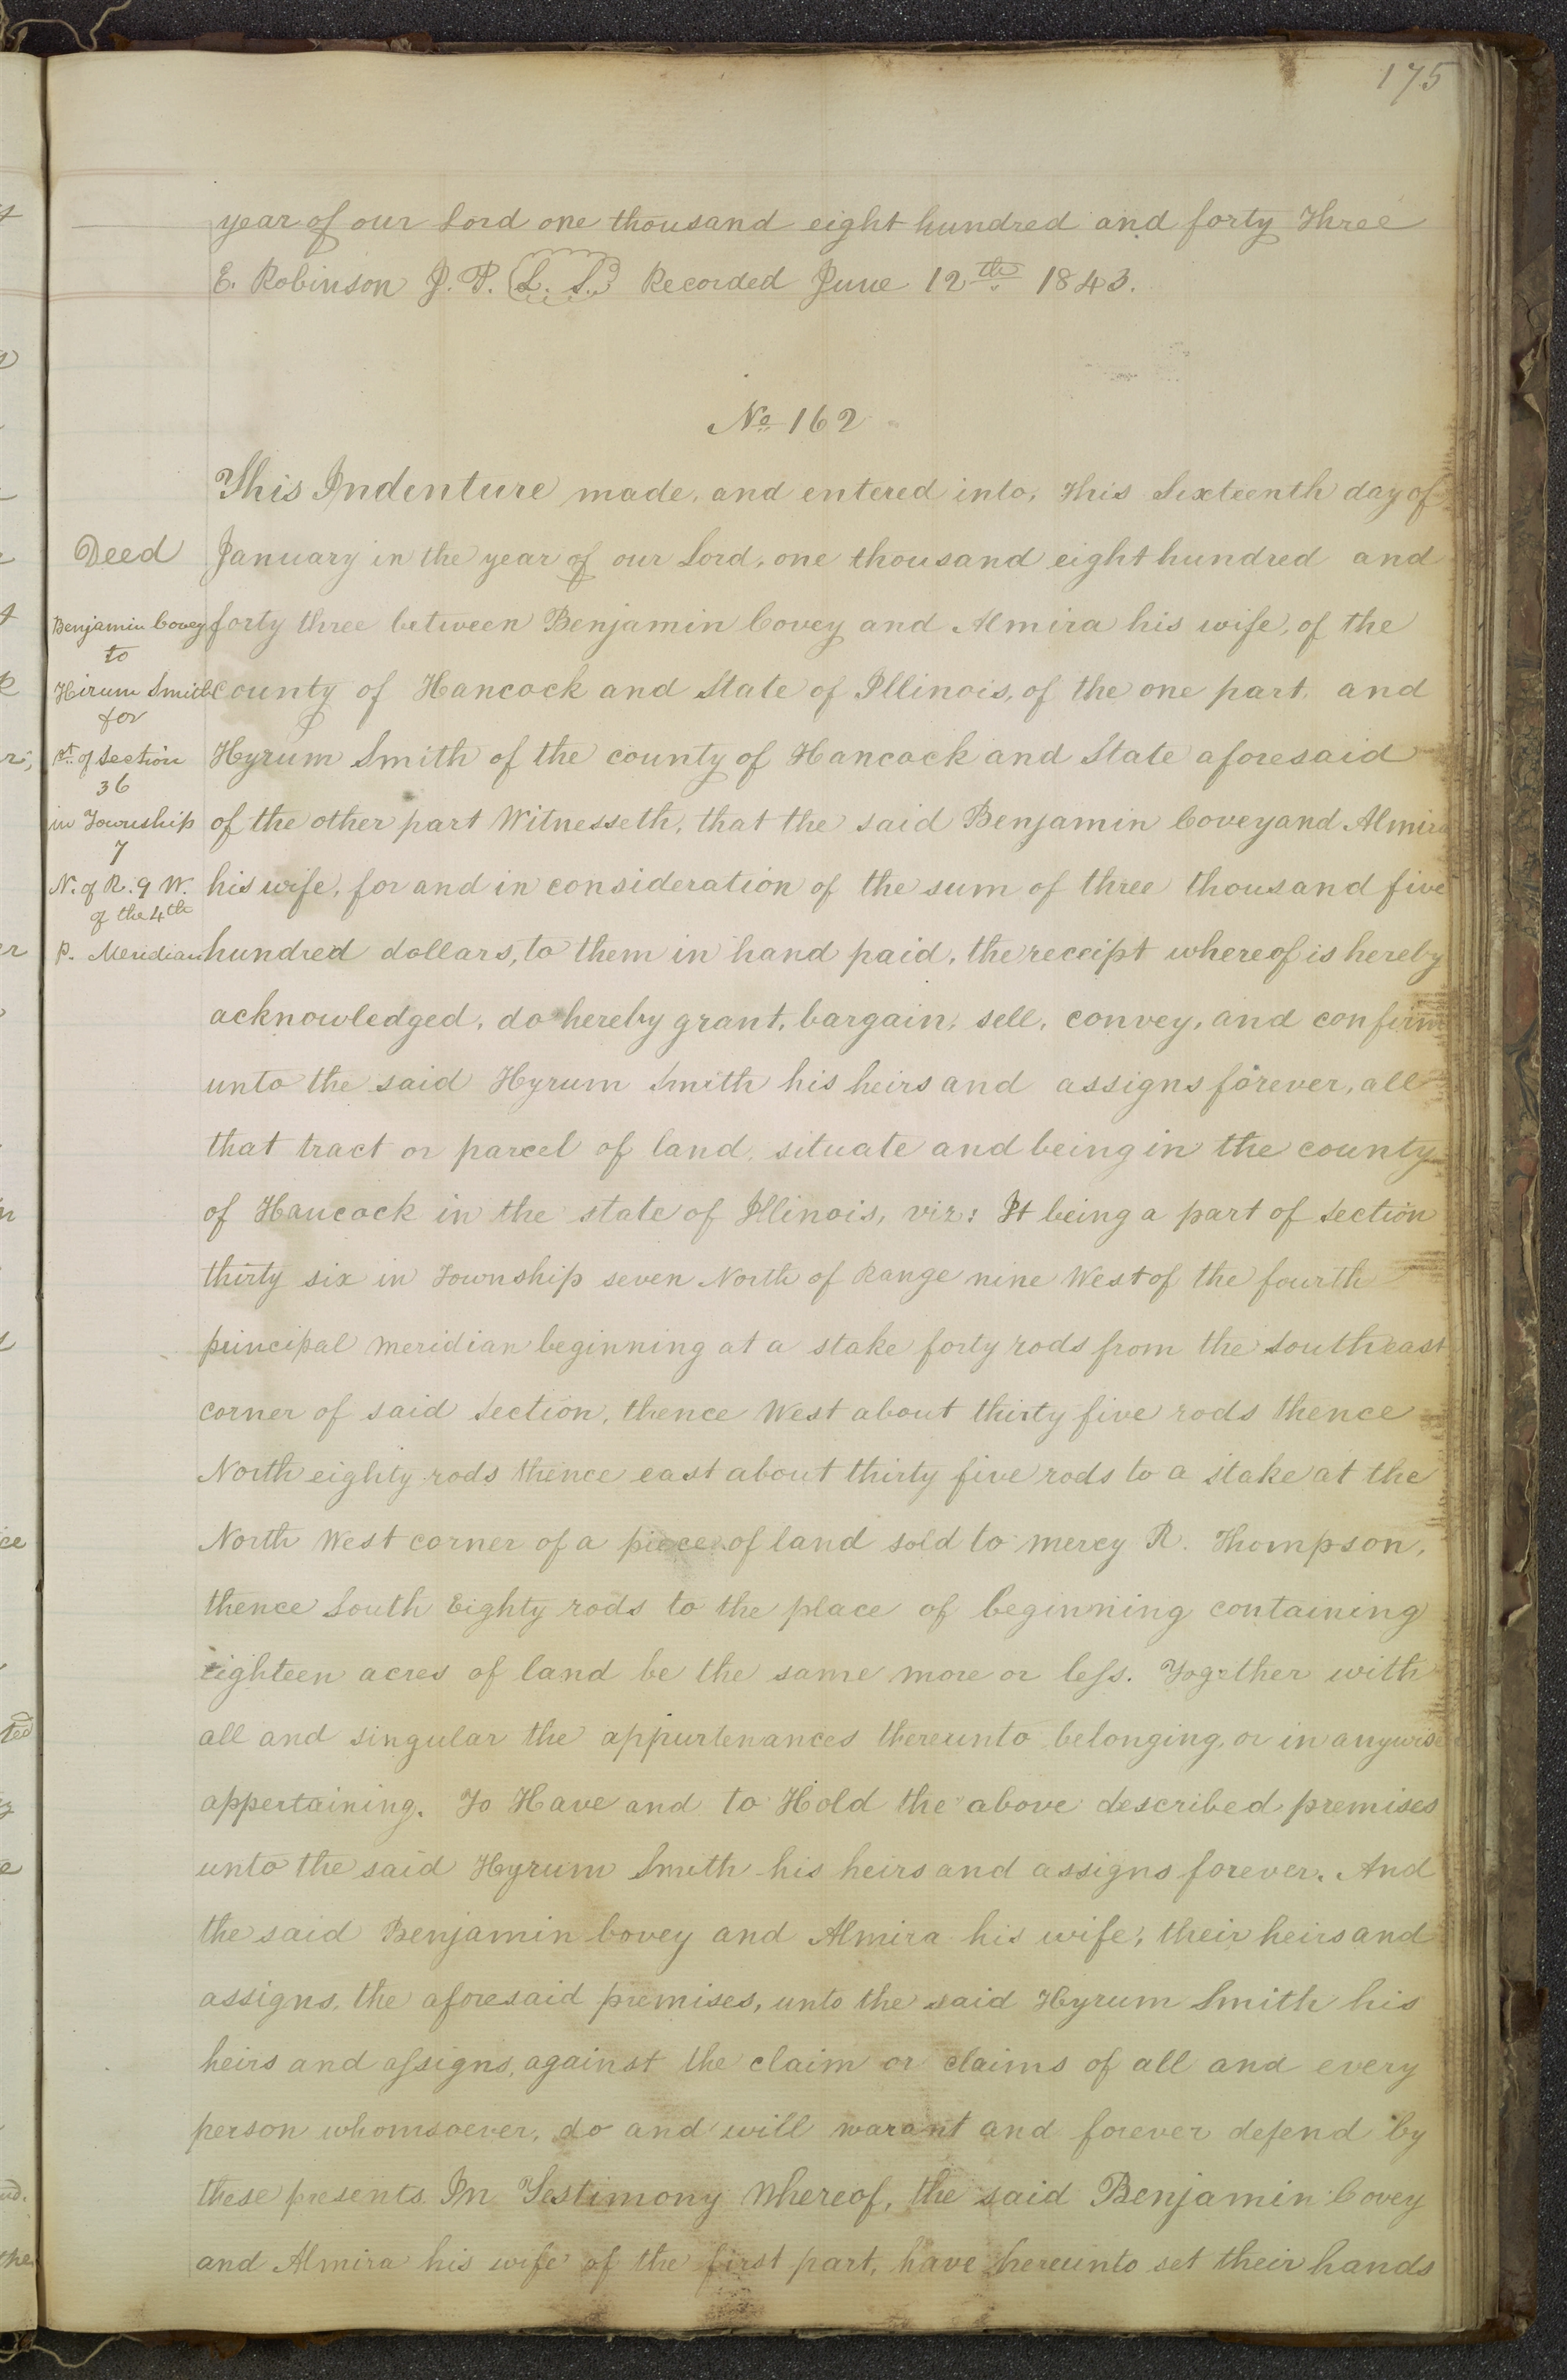 175
year of our Lord one thousand eight hundred and forty Three
E. Robinson J. P. L. S. Recorded June 12th 1843.
No 162
This Indenture made, and entered into, this Sixteenth day of
January in the year of our Lord, one thousand eight hundred and
forty three between Benjamin Covey and Almira his wife, of the
county of Hancock and State of Illinois, of the one part, and
Hyrum Smith of the county of Hancock and State aforesaid
of the other part Witnesseth, that the said Benjamin Covey and Almira
his wife, for and in consideration of the sum of three thousand five
hundred dollars, to them in hand paid, the receipt whereof is hereby
acknowledged, do hereby grant, bargain, sell, convey, and confirm
unto the said Hyrum Smith his heirs and assigns forever, all
that tract or parcel of land, situate and being in the county
of Hancock in the state of Illinois, viz: It being a part of Section
thirty six in Township seven North of Range nine West of the fourth
principal meridian beginning at a stake forty rods from the South east
corner of said Section, thence West about thirty five rods thence
North eighty rods thence east about thirty five rods to a stake at the
North West corner of a piece of land sold to mercy R. Thompson,
thence South Eighty rods to the place of beginning containing
eighteen acres of land be the same more or less. Together with
all and singular the appurtenances thereunto belonging, or in anywise
appertaining. To Have and to Hold the above described premises
unto the said Hyrum Smith his heirs and assigns forever. And
the said Benjamin Covey and Almira his wife, their heirs and
assigns, the aforesaid premises, unto the said Hyrum Smith his
heirs and assigns, against the claim or claims of all and every
person whomsoever, do and will warant and forever defend by
these presents. In Testimony Whereof, the said Benjamin Covey
and Almira his wife of the first part, have hereunto set their hands
Deed
Benjamin Covey
to
Hirum Smith
for
pt. of Section
36
in Township
7
N. of R. 9 W.
of the 4th
P. Meridian